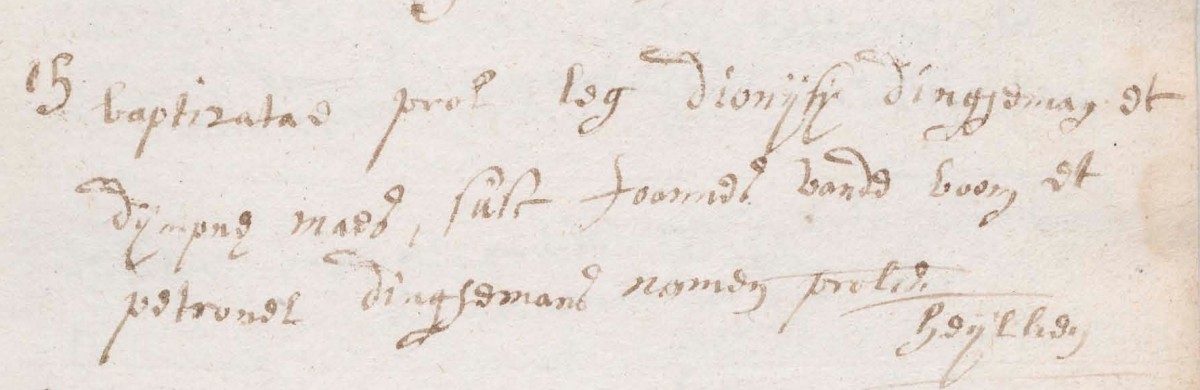 15 baptizatae prol leg dionijsy dingheman et
dijmpne maes, susc Joannes vande boom et
petronel dinghemans nomen prolis
heijlken